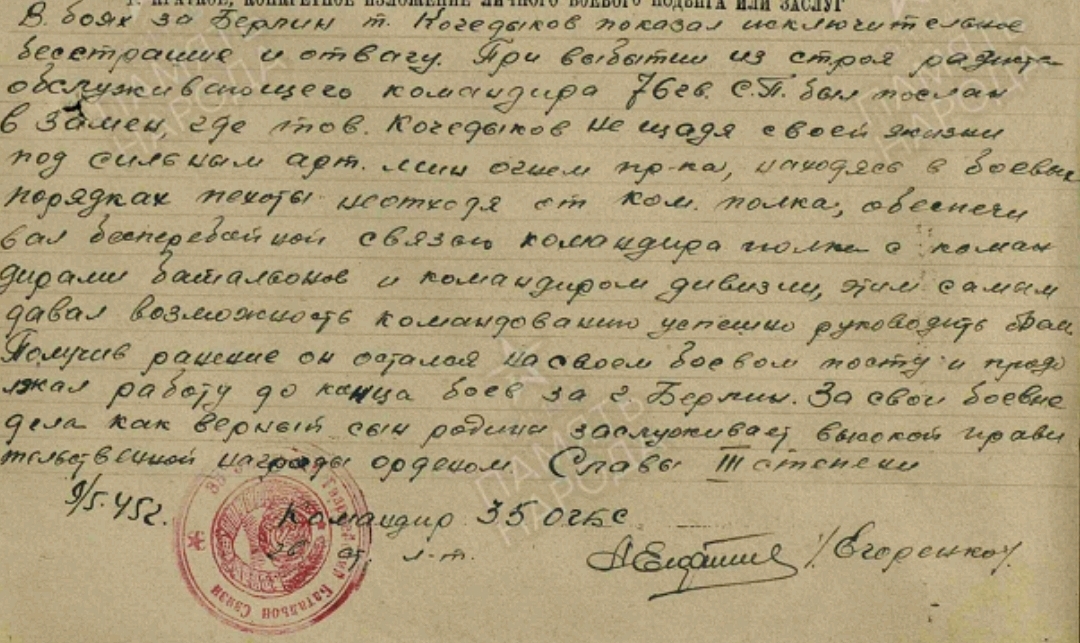 I. КРАТКОЕ, КОНКРЕТНОЕ ИЗЛОЖЕНИЕ ЛИЧНОГО БОЕВОГО ПОДВИГА ИЛИ ЗАСЛУГ
В боях за Берлин т. Кочедыков показал исключительное
бесстрашие и отвагу. При выбытии из строя радиста
обслуживающего командира 76 гв. С.П. был послан
в замен, где тов. Кочедыков не щадя своей жизни
под сильным арт. мин огнем пр-ка, находясь в боевых
порядках пехоты неотходя от ком. полка, обеспечи
вал бесперебойной связью командира полка с коман
дирами батальонов и командиром дивизии, этим самым
давал возможность командованию успешно руководить боем.
Получив ранение он остался на своем боевом посту и продо
лжал работу до конца боев за г. Берлин. За свои боевые
дела как верный сын родины заслуживает высокой прави
тельственной награды орденом Славы III степени
9/5.45г.
Командир 35 огбс
гв. ст. л-т.
/Егоренко/
Батальон Связи
ПАМЯТЬ НАРОДА